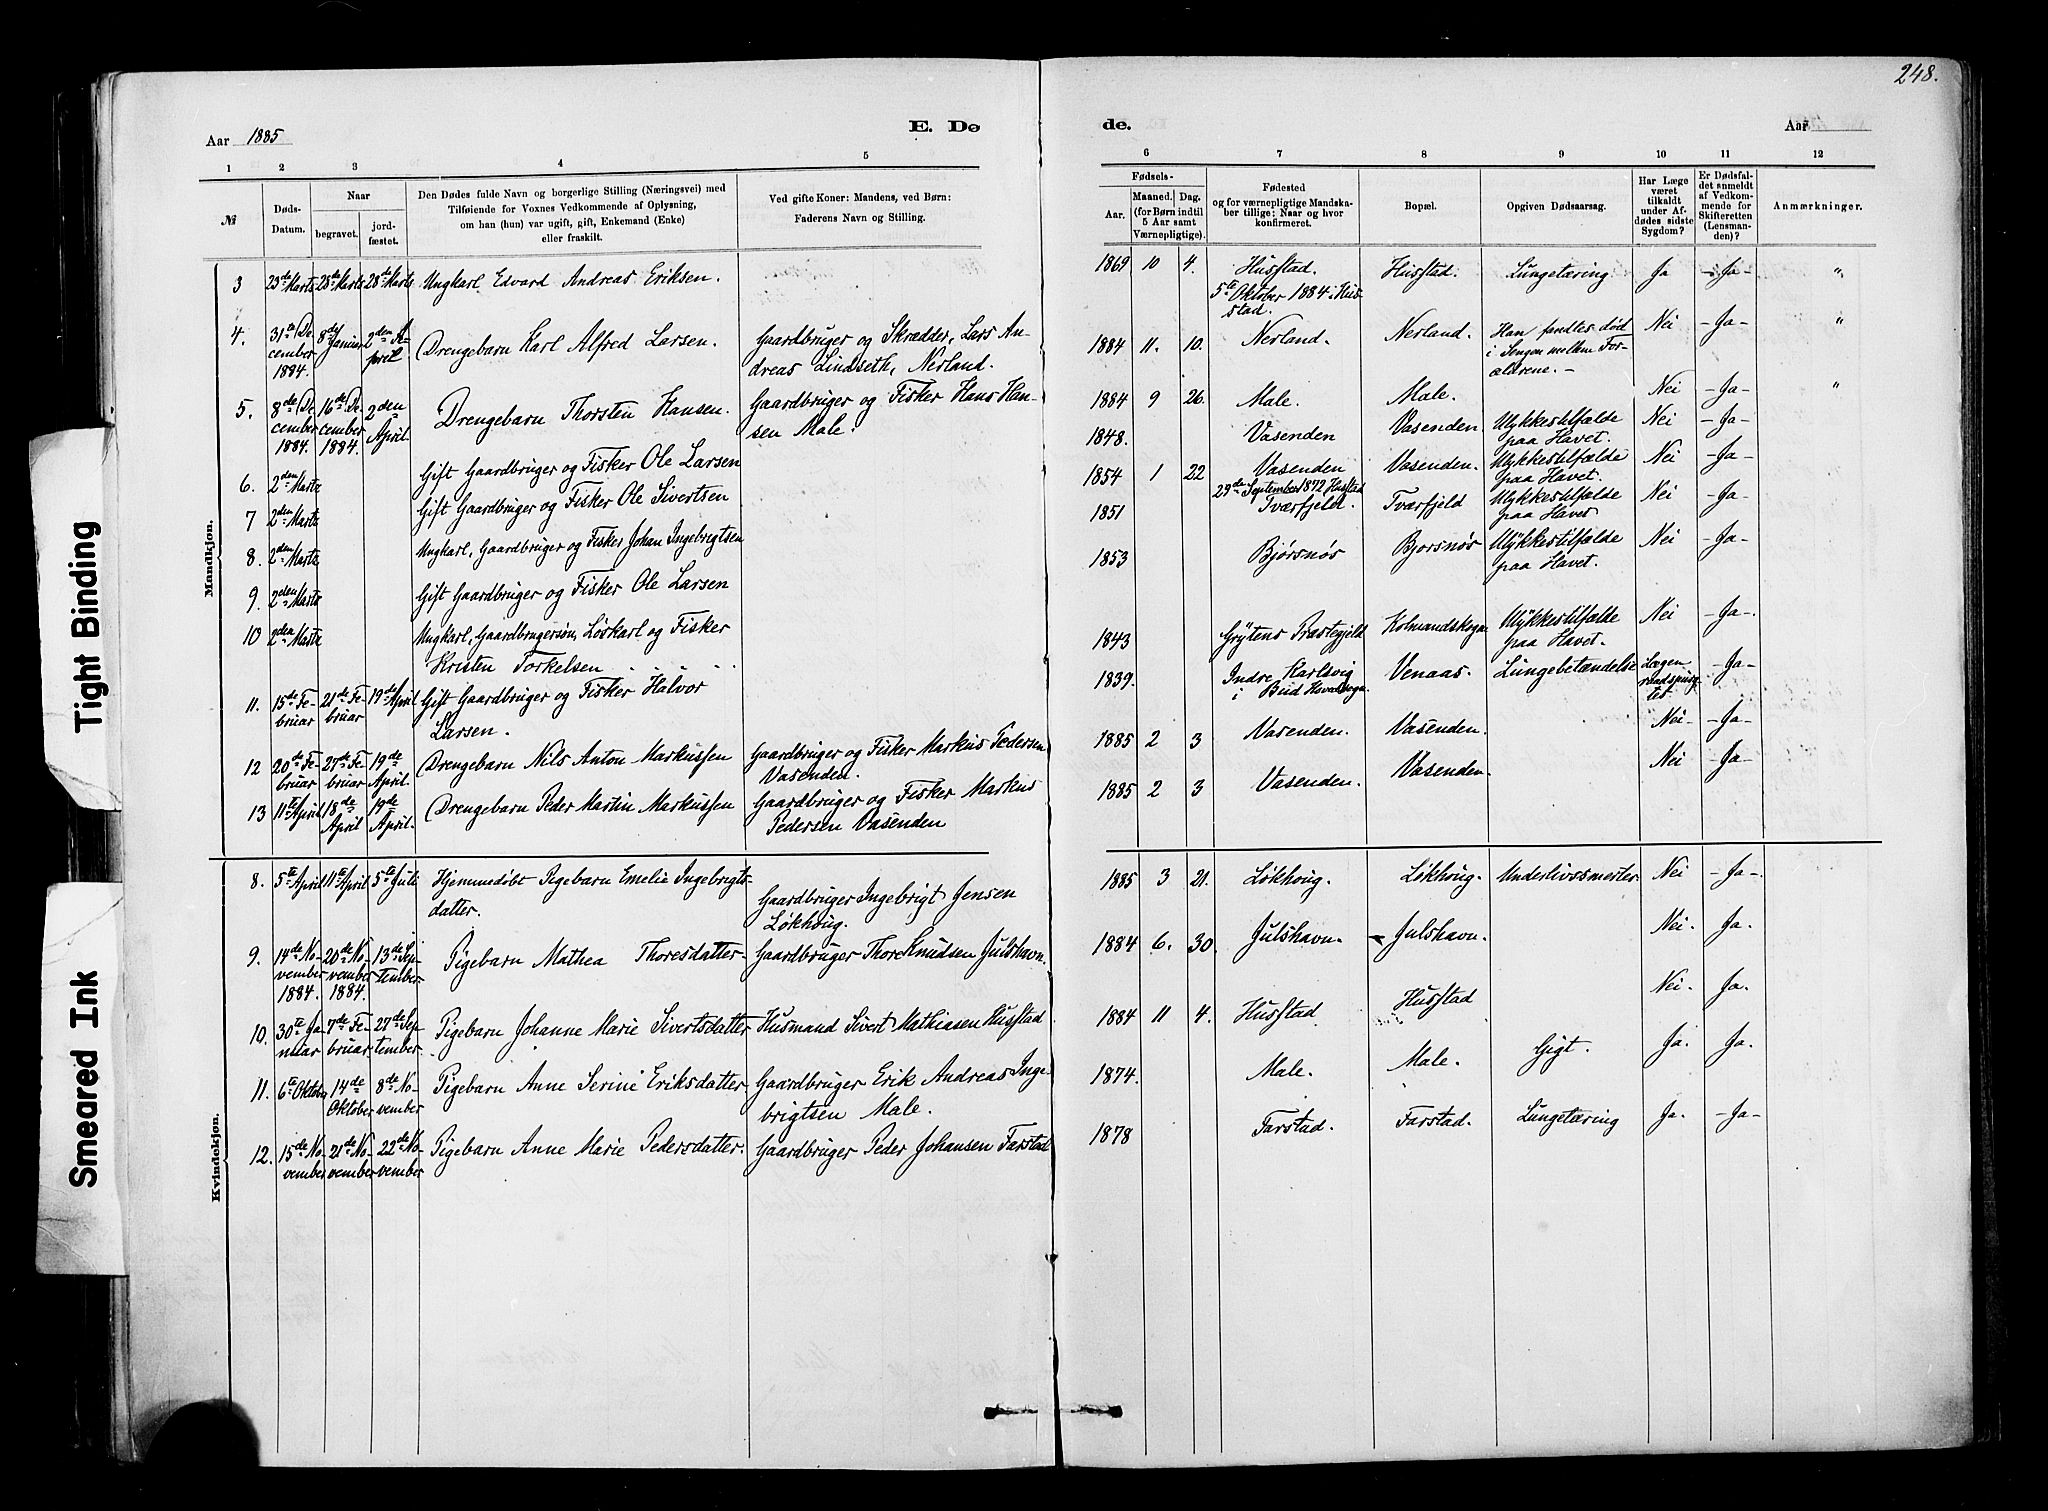 248.
Aar 1885
E. Dø
de.
Aar
1 2 3 4 5
6 7 8 9 10 11 12
№
Døds-
Datum.
Naar
begravet.
jord-
fæstet.
Den Dødes fulde Navn og borgerlige Stilling (Næringsvei) med
Tilføiende for Voxnes Vedkommende af Oplysning,
om han (hun) var ugift, gift, Enkemand (Enke)
eller fraskilt.
Ved gifte Koner: Mandens, ved Børn:
Faderens Navn og Stilling.
Fødsels-
Aar.
Maaned. Dag.
(for Børn indtil
5 Aar samt
Værnepligtige).
Fødested
og for værnepligtige Mandska-
ber tillige: Naar og hvor
konfirmeret.
Bopæl.
Opgiven Dødsaarsag.
Har Læge
været
tilkaldt
under Af-
dødes sidste
Sygdom?
Er Dødsfal-
det anmeldt
af Vedkom-
mende for
Skifteretten
(Lensman-
den)?
Anmærkninger.
Mandkjøn.
3 23de Marts 28de Marts 28de Marts Ungkarl Edvard Andreas Eriksen. 1869 10 4. Husstad. Husstad. Lungetæring. Ja - Ja - "
5te Oktober 1884 i Hus-
stad.
4. 31te De- 8de 2den A- Drengebarn Karl Alfred Larsen. Gaardbruger og Skrædder, Lars An- 1884 11. 10. Nerland. Nerland. Han fandtes død Nei - Ja - "
cember Januar pril dreas Lindseth, Nerland. i Sengen mellem For-
1884. ældrene. -
5. 8de De- 16de De- 2den Drengebarn Thorsten Hansen. Gaardbruger og Fisker Hans Han- 1884 9 26. Male. Male. Nei - Ja - "
cember cember April sen Male.
1884. 1884.
6. 2den Marts Gift Gaardbruger og Fisker Ole Larsen 1848. Vasenden Vasenden. Ulykkestilfælde Nei - Ja -
paa Havet.
7 2den Marts Gift Gaardbruger og Fisker Ole Sivertsen 1854 1 22 Vasenden Vasenden. Ulykkestilfælde Nei - Ja -
29de September 1872 Husstad paa Havet.
8. 2den Marts Ungkarl, Gaardbruger og Fisker Johan Ingebrigtsen 1851 Tværfjeld. Tværfjeld Ulykkestilfælde Nei - Ja -
paa Havet
9. 2den Marts Gift Gaardbruger og Fisker Ole Larsen 1853 Bjørsnøs Bjorsnøs Ulykkestilfælde Nei - Ja -
paa Havet.
10 2den Marts Ungkarl, Gaardbrugersøn, Løskarl og Fisker 1843 Grytens Præstegjeld Ulykkestilfælde Nei - Ja -.
Kristen Torkelsen paa Havet.
11. 15de Fe- 21de Fe- 19de April Gift Gaardbruger og Fisker Halvor 1839. Indre Karlsvig Venaas. Lungebetændelse Lægen - Ja -
bruar bruar Larsen. i Bud
12 20de Fe- 27de Fe- 19de Drengebarn Nils Anton Markussen Gaardbruger og Fisker Markus Pedersen 1885 2 3 Vasenden. Vasenden. Nei - - Ja -
bruar bruar April. Vasenden.
13 11te April 18de 19de Drengebarn Peder Martin Markussen Gaardbruger og Fisker Markus 1885 2 3 Vasenden. Vasenden. Nei - Ja -
April April. Pedersen Vasenden
Kvindekjøn.
8. 5te April 11te April 5te Juli Hjemmedøbt Pigebarn Emelie Ingebrigts- Gaardbruger Ingebrigt Jensen 1885 3 21. Løkhoug. Løkhoug. Underlivssmerter Nei - Ja -.
datter. Løkhoug.
9. 14de No- 20de No- 13de Sep- Pigebarn Mathea Thoresdatter. Gaardbruger Thore Knudsen Julshavn. 1884 6. 30. Julshavn. Julshavn. Nei. Ja.
vember vember tember
1884. 1884.
10. 30te Ja- 7de Fe- 27de Sep- Pigebarn Johanne Marie Sivertsdatter Husmand Sivert Mathiasen Husstad 1884 11 4. Husstad Husstad Nei. Ja.
nuar bruar tember.
11. 6te Oktober 14de 8de No- Pigebarn Anne Serine Eriksdatter Gaardbruger Erik Andreas Inge- 1874. Male. Male. Gigt. Ja. Ja.
Oktober vember brigtsen Male.
12. 15de No- 21de No- 22de No- Pigebarn Anne Marie Pedersdatter. Gaardbruger Peder Johansen Farstad 1878 Farstad. Farstad. Lungetæring Ja. - Ja -
vember vember vember
Tight Binding
Smeared Ink